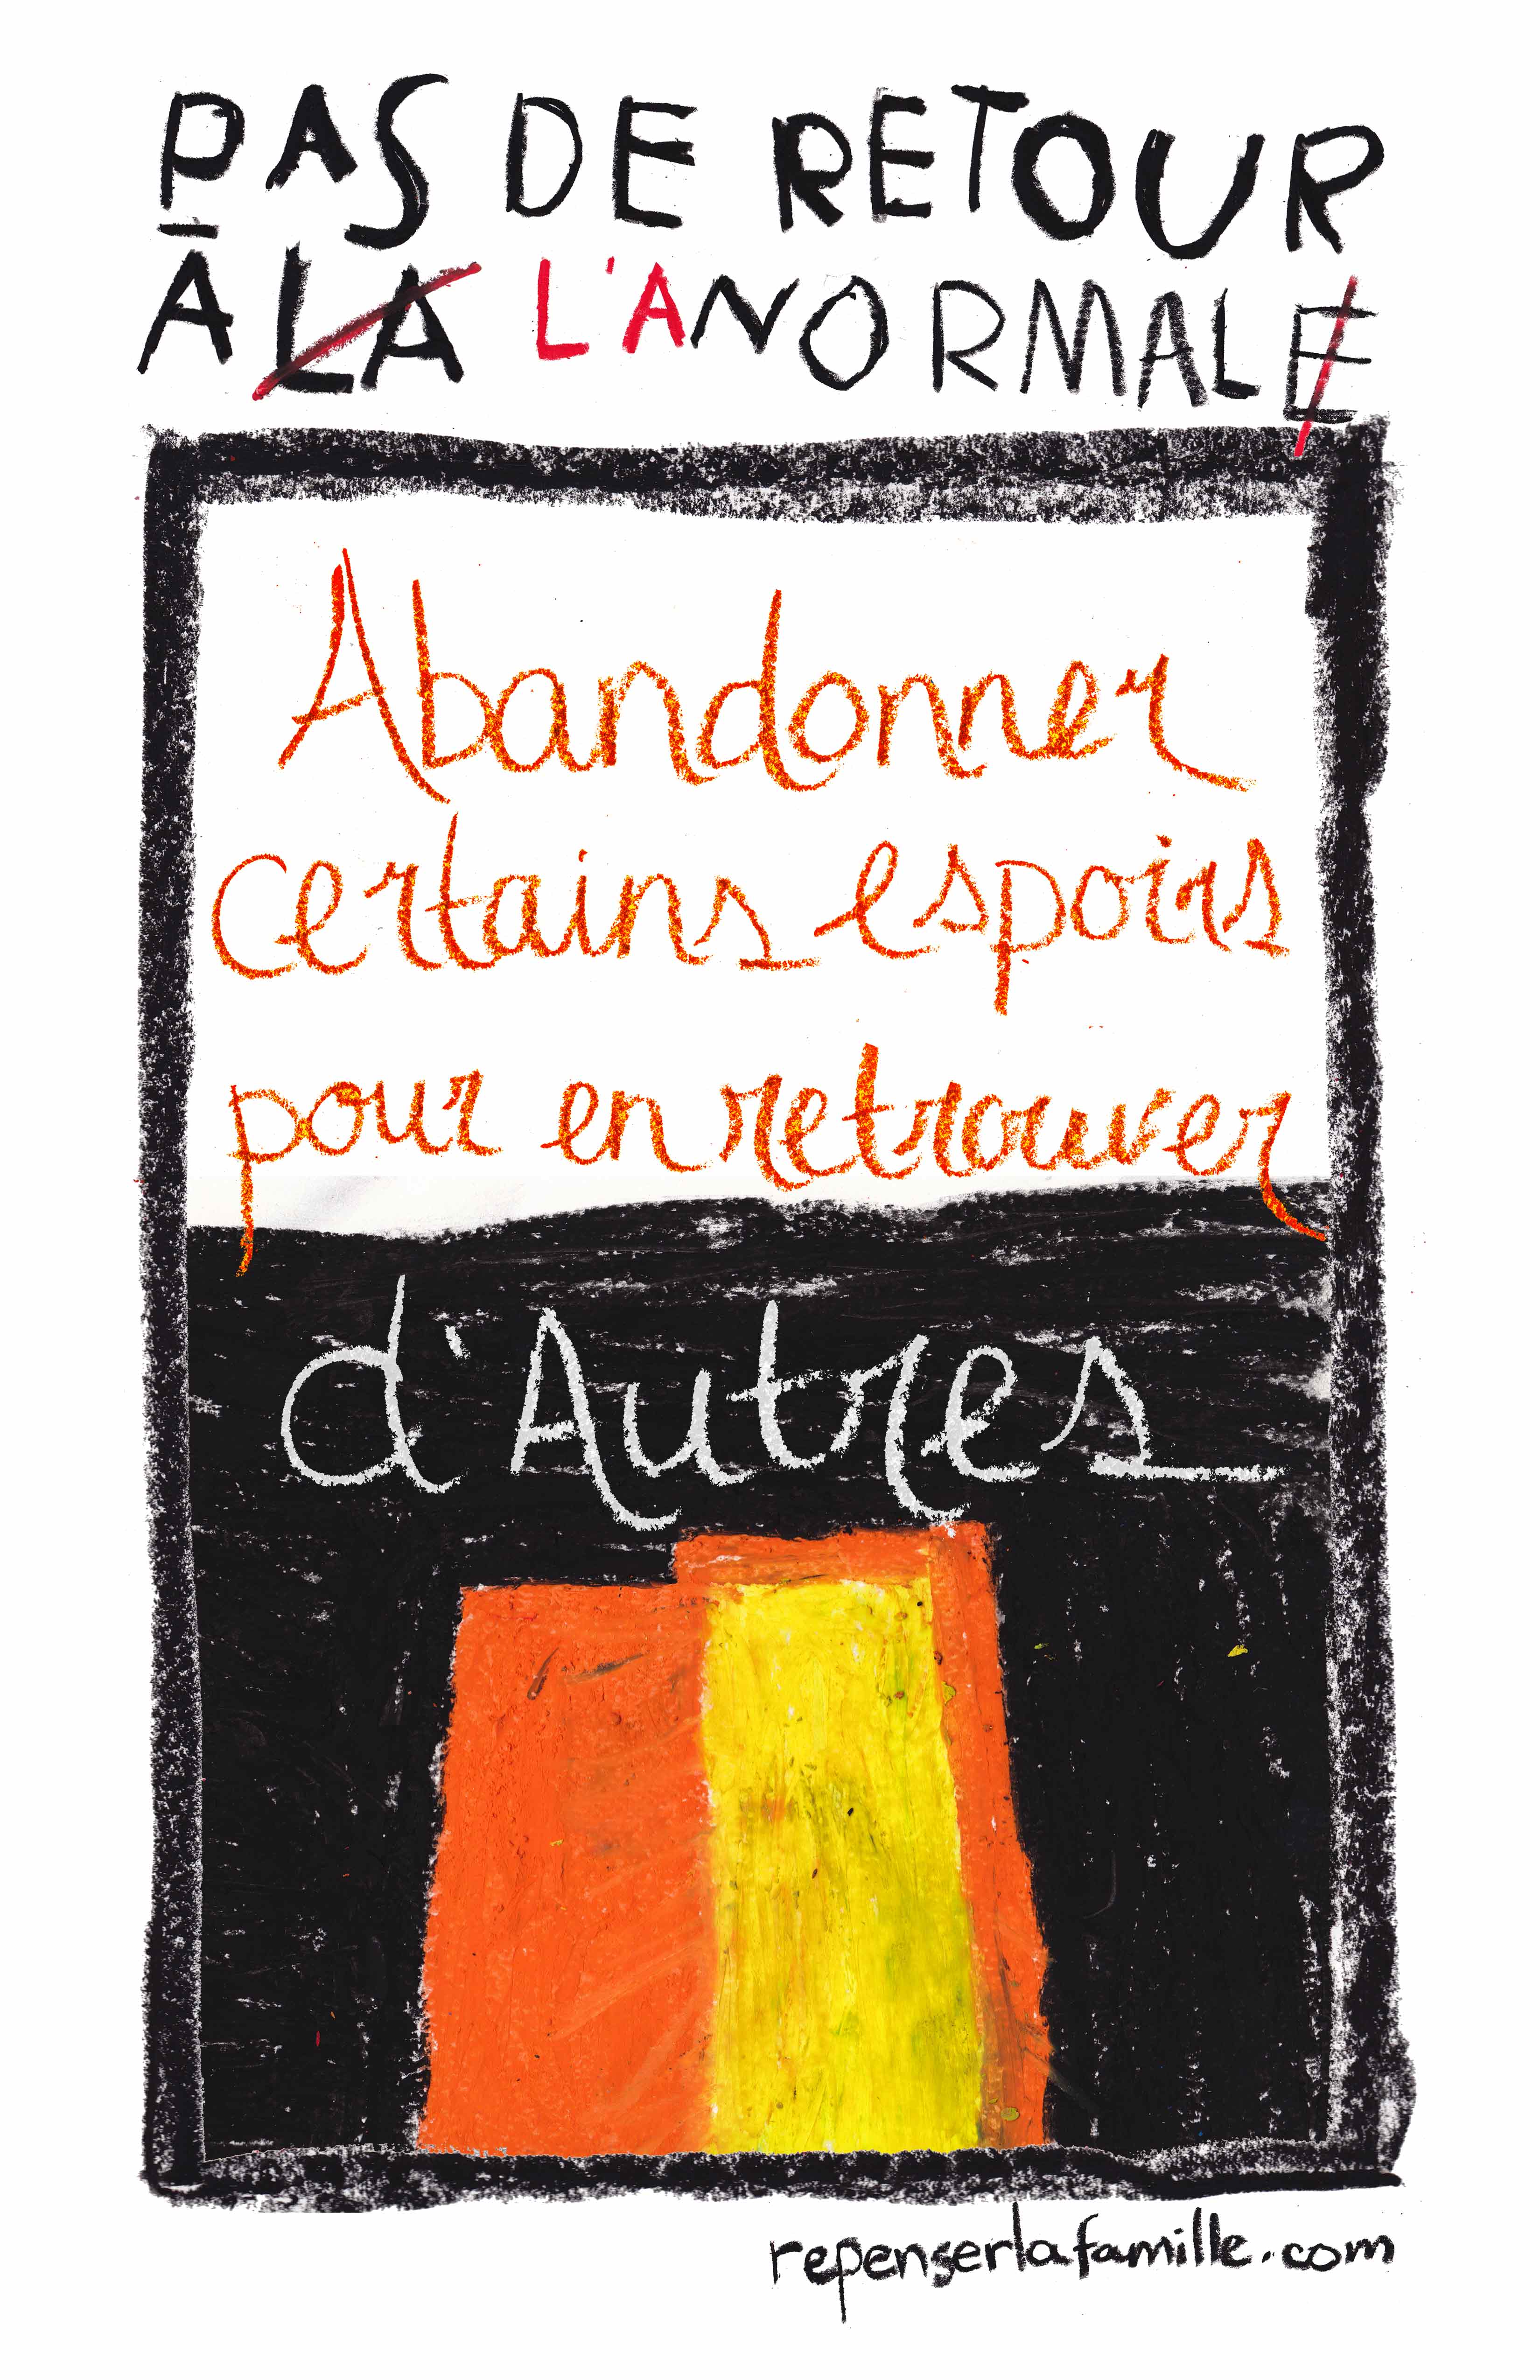 PAS DE RETOUR
À LA L'ANORMALE
Abandonner
certains espoirs
pour en retrouver
d'Autres
repenserlafamille.com